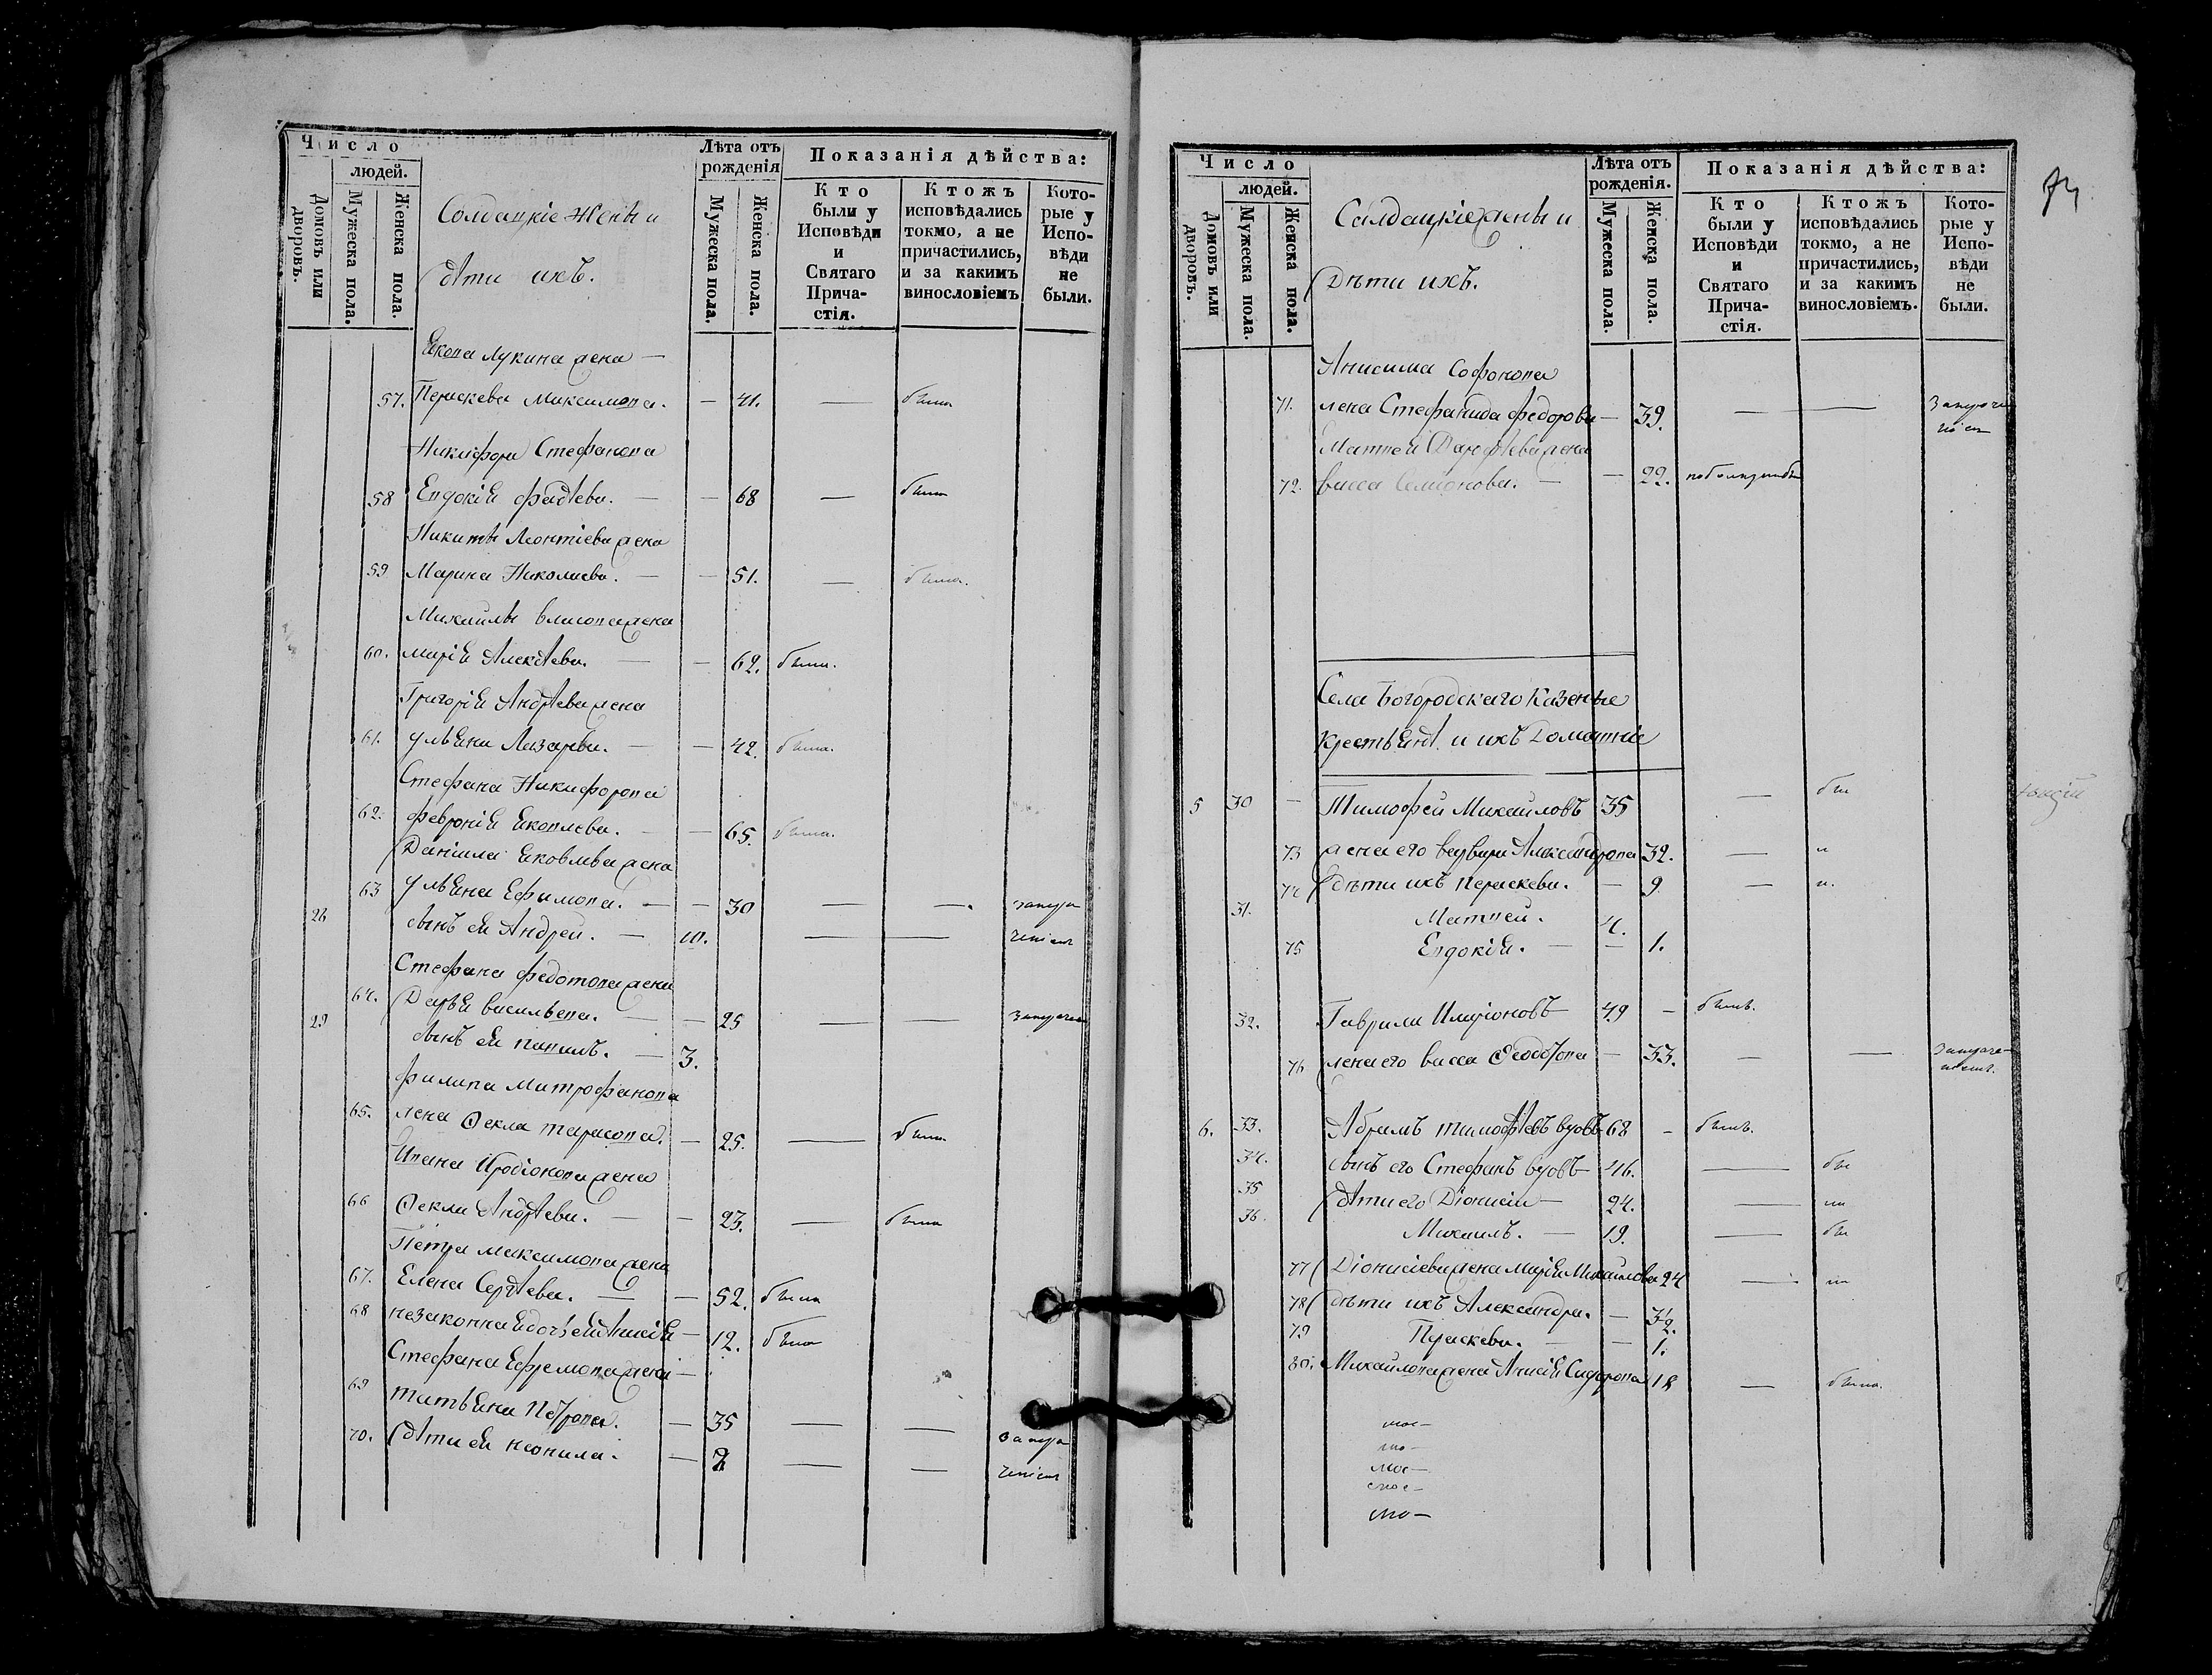 Число
людей.
Домовъ или дворовъ.
Мужеска пола.
Женска пола.
Солдацкіе жены и
дѣти ихъ.
Лѣта отъ рожденія
Мужеска пола.
Женска пола.
Показанія дѣйства:
Кто были у Исповѣди и Святаго Причастія.
Ктожъ исповѣдались токмо, а не причастились, и за какимъ винословіемъ
Которые у Исповѣди не были.
Якова Лукина жена —
57. Параскева Максимова. — 41. — была
Никифора Стефанова
58 Евдокія Фадѣева. — — 68 — была
Никиты Леонтіева жена
59 Марина Николаева. — — 51. — была.
Михайлы Власова жена
60. Марія Алексѣева. — — 62. была.
Григорія Андрѣева жена
61. Ульяна Лазарева. — — 42. была.
Стефана Никифорова
62. Февронія Яковлева. — — 65. была.
Даніила Яковлева жена
63 Ульяна Ефимова. — — 30 — —
28 сынъ ея Андрей. — 10. — —
Стефана Федотова жена
64. Дарья Васильева. — — 25 — —
29 сынъ ея Павелъ. — 3.
Филипа Митрофанова
65. жена Ѳекла Тарасова. — 25. — была
Ивана Иродіонова жена
66 Ѳекла Андрѣева. — — 23. — была
Петра Максимова жена
67. Елена Сергѣева. — — 52. была
68 незаконная дочь ея Анисія — 12. была
Стефана Ефремова жена —
69 Татьяна Петрова. — 35 — —
70. дѣти ея Неонила. — 7 — —
Число
людей.
Домовъ или дворовъ.
Мужеска пола.
Женска пола.
Салдацкіе жены и
Дѣти ихъ.
Лѣта отъ рожденія.
Мужеска пола.
Женска пола.
Показанія дѣйства:
Кто были у Исповѣди и Святаго Причастія.
Ктожъ исповѣдались токмо, а не причастились, и за какимъ винословіемъ.
Которые у Исповѣди не были.
Анисима Софонова
71. жена Стефанида Федорова — 39. — —
Матвея жена
72. Васса Семіонова. — — 22.
Села Богородскаго Казенные
Крестьянѣ и ихъ Домашніе
5 30 — Тимофей Михайловъ 35 — бы
73 жена его Варвара Александрова 32. — "
74 дѣти ихъ Параскева. — 9 — "
31. Матвей. 4.
75 Евдокія. — — 1.
32. Гаврила Иларіоновъ 49 — былъ.
76 жена его Васса Ѳеодотова — 33. — —
6. 33. Абрамъ Тимофѣевъ вдовъ 68 — былъ.
34. сынъ его Стефанъ вдовъ 46. — бы
35 дѣти его Діонисій — 24. —
36. Михаилъ. — 19. — бы
77 Діонисіева жена Марія Михайлова 24 —
78 дѣти ихъ Александра. — 3½.
79 Параскева. — — 1.
80. Михайлова жена Анисія Сидорова 18 — была.